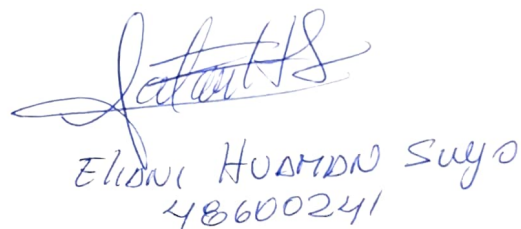 Eliani Huaman Suyo
48600241